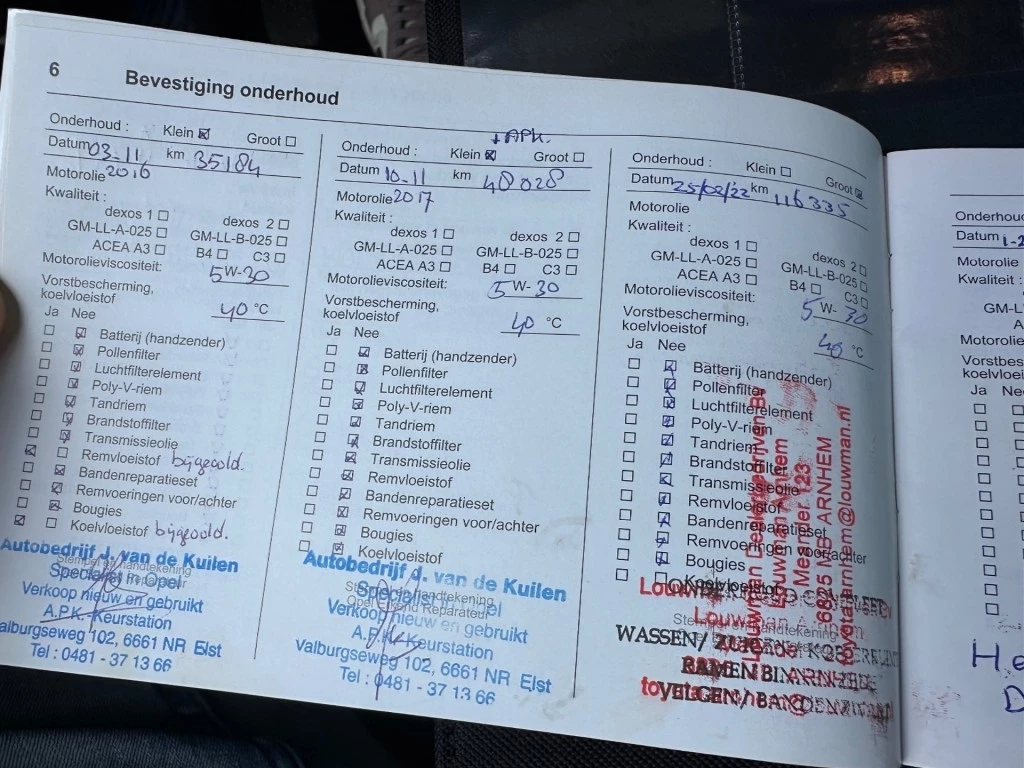 6
Bevestiging onderhoud
Onderhoud : Klein Groot
Datum 03-11 km 35184
Motorolie 2016
Kwaliteit :
dexos 1 dexos 2
GM-LL-A-025 GM-LL-B-025
ACEA A3 B4 C3
Motorolieviscositeit:
5W-30
Vorstbescherming,
koelvloeistof 40 °C
Ja Nee
Batterij (handzender)
Pollenfilter
Luchtfilterelement
Poly-V-riem
Tandriem
Brandstoffilter
Transmissieolie
Remvloeistof bijgevuld.
Bandenreparatieset
Remvoeringen voor/achter
Bougies
Koelvloeistof bijgevuld.
Stempel en handtekening
Autobedrijf J. van de Kuilen
Specialist in Opel
Verkoop nieuw en gebruikt
A.P.K. Keurstation
Valburgseweg 102, 6661 NR Elst
Tel : 0481 - 37 13 66
+APK.
Onderhoud : Klein Groot
Datum 10-11 km 48028
Motorolie 2017
Kwaliteit :
dexos 1 dexos 2
GM-LL-A-025 GM-LL-B-025
ACEA A3 B4 C3
Motorolieviscositeit:
5W-30
Vorstbescherming,
koelvloeistof 40 °C
Ja Nee
Batterij (handzender)
Pollenfilter
Luchtfilterelement
Poly-V-riem
Tandriem
Brandstoffilter
Transmissieolie
Remvloeistof
Bandenreparatieset
Remvoeringen voor/achter
Bougies
Koelvloeistof
Stempel en handtekening
Opel Erkend Reparateur
Autobedrijf J. van de Kuilen
Specialist in Opel
Verkoop nieuw en gebruikt
A.P.K. Keurstation
Valburgseweg 102, 6661 NR Elst
Tel : 0481 - 37 13 66
Onderhoud : Klein Groot
Datum 25/02/22 km 116335
Motorolie
Kwaliteit :
dexos 1 dexos 2
GM-LL-A-025 GM-LL-B-025
ACEA A3 B4 C3
Motorolieviscositeit:
5W-30
Vorstbescherming,
koelvloeistof 40 °C
Ja Nee
Batterij (handzender)
Pollenfilter
Luchtfilterelement
Poly-V-riem
Tandriem
Brandstoffilter
Transmissieolie
Remvloeistof
Bandenreparatieset
Remvoeringen voor/achter
Bougies
Koelvloeistof
Louwman Arnhem
6825 MB ARNHEM
toyota.arnhem@louwman.nl
WASSEN/
RAMEN
VELGEN/
Onderhoud
Datum
Motorolie
Kwaliteit :
GM-L
A
Motorolie
Vorstbes
koelvloei
Ja Nee